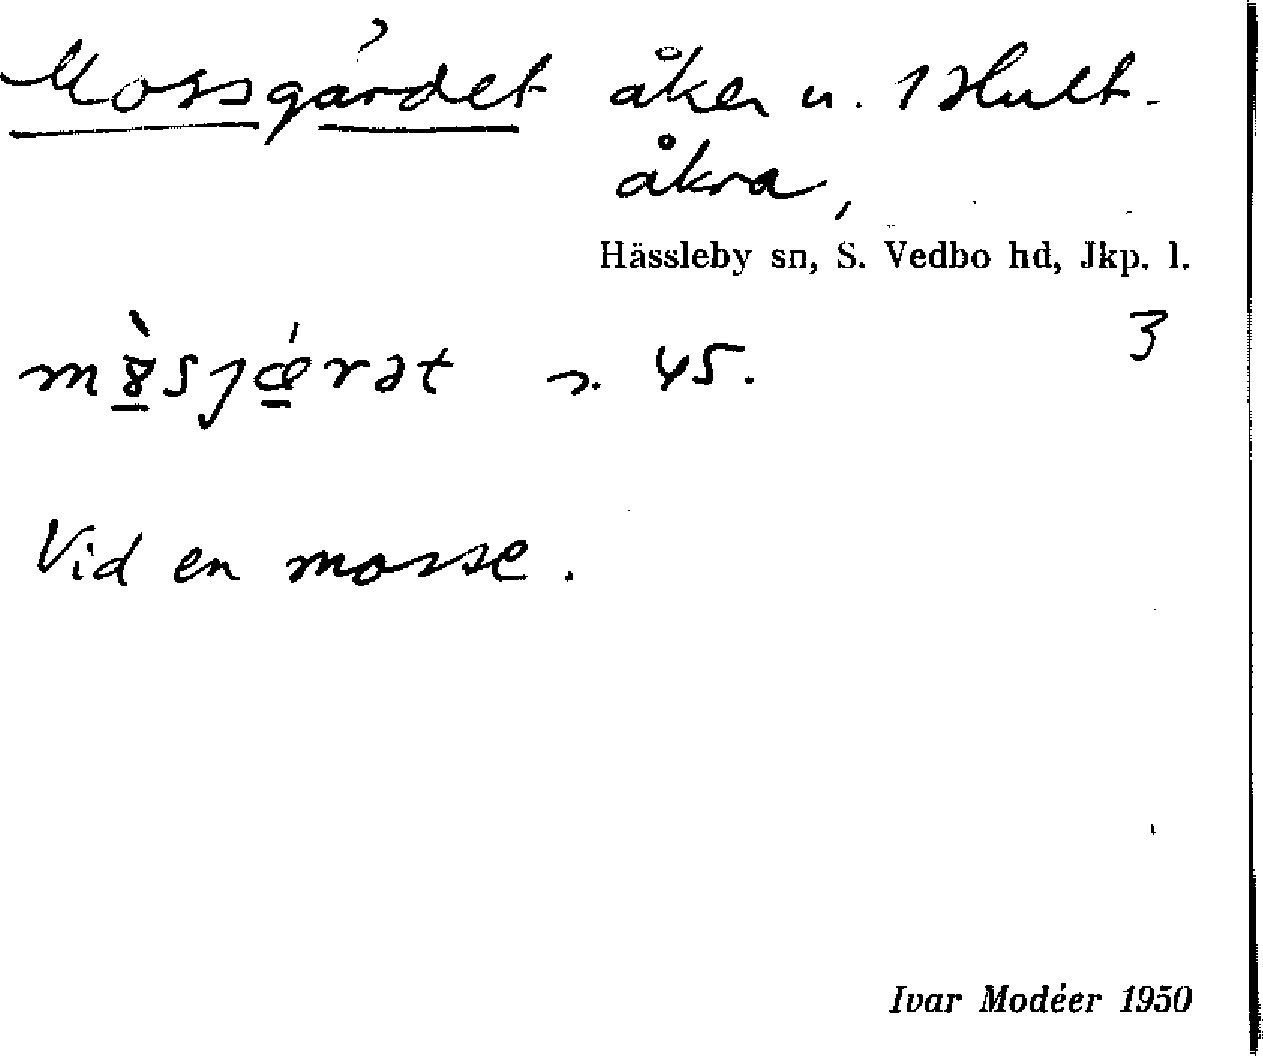 Mossgärdet åker u. 1 Hult-
åkra,
Hässleby sn, S. Vedbo hd, Jkp. l.
3
s. 45.
Vid en mosse.
Ivar Modéer 1950